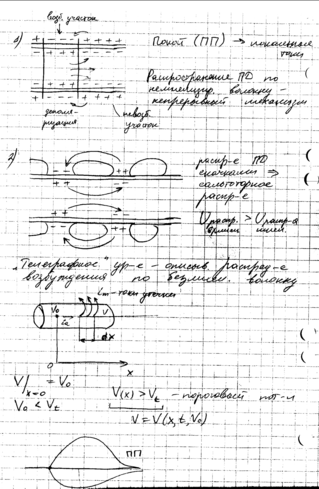 возб. участок
1)
+ + + + - - - - + + + +
- - - - + + + + - - - -
Покой (ПП) → локальные токи
Распространение ПД по
немиелинир. волокну -
непрерывный механизм
деполя-
ризация
невозб.
участок
2)
распр-е ПД
скачками ⇒
сальтаторное
распр-е
"Телеграфное" ур-е - описыв. распред-е
возбуждения по безмиелин. волокну
i_m - токи утечки
V₀
i_a
V
dx
0
x
V|x=0 = V₀
V₀ < V_t
V(x) > V_t - пороговый пот-л
V = V(x, t, V₀)
ПП